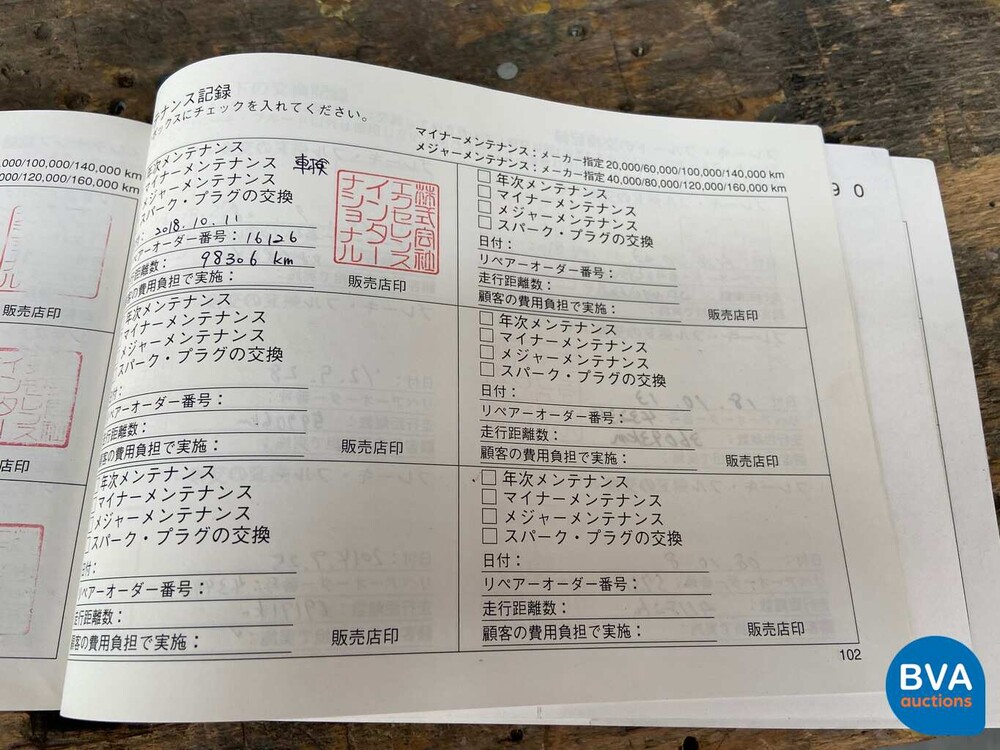 テナンス記録
ックスにチェックを入れてください。
マイナーメンテナンス：メーカー指定20,000/60,000/100,000/140,000 km
メジャーメンテナンス：メーカー指定40,000/80,000/120,000/160,000 km
,000/100,000/140,000 km
/120,000/160,000 km
販売店印
店印
年次メンテナンス
マイナーメンテナンス 車検
メジャーメンテナンス
スパーク・プラグの交換
：2018.10.11
ペアーオーダー番号：16126
行距離数：98306 km
客の費用負担で実施：
株式会社
エクセレンス
インター
ナショナル
販売店印
年次メンテナンス
マイナーメンテナンス
メジャーメンテナンス
スパーク・プラグの交換
日付：
リペアーオーダー番号：
走行距離数：
顧客の費用負担で実施：
販売店印
年次メンテナンス
マイナーメンテナンス
メジャーメンテナンス
スパーク・プラグの交換
付：
ペアーオーダー番号：
走行距離数：
顧客の費用負担で実施：
販売店印
年次メンテナンス
マイナーメンテナンス
メジャーメンテナンス
スパーク・プラグの交換
日付：
リペアーオーダー番号：
走行距離数：
顧客の費用負担で実施：
販売店印
年次メンテナンス
マイナーメンテナンス
メジャーメンテナンス
スパーク・プラグの交換
付：
リペアーオーダー番号：
走行距離数：
顧客の費用負担で実施：
販売店印
年次メンテナンス
マイナーメンテナンス
メジャーメンテナンス
スパーク・プラグの交換
日付：
リペアーオーダー番号：
走行距離数：
顧客の費用負担で実施：
販売店印
102
90
BVA
auctions